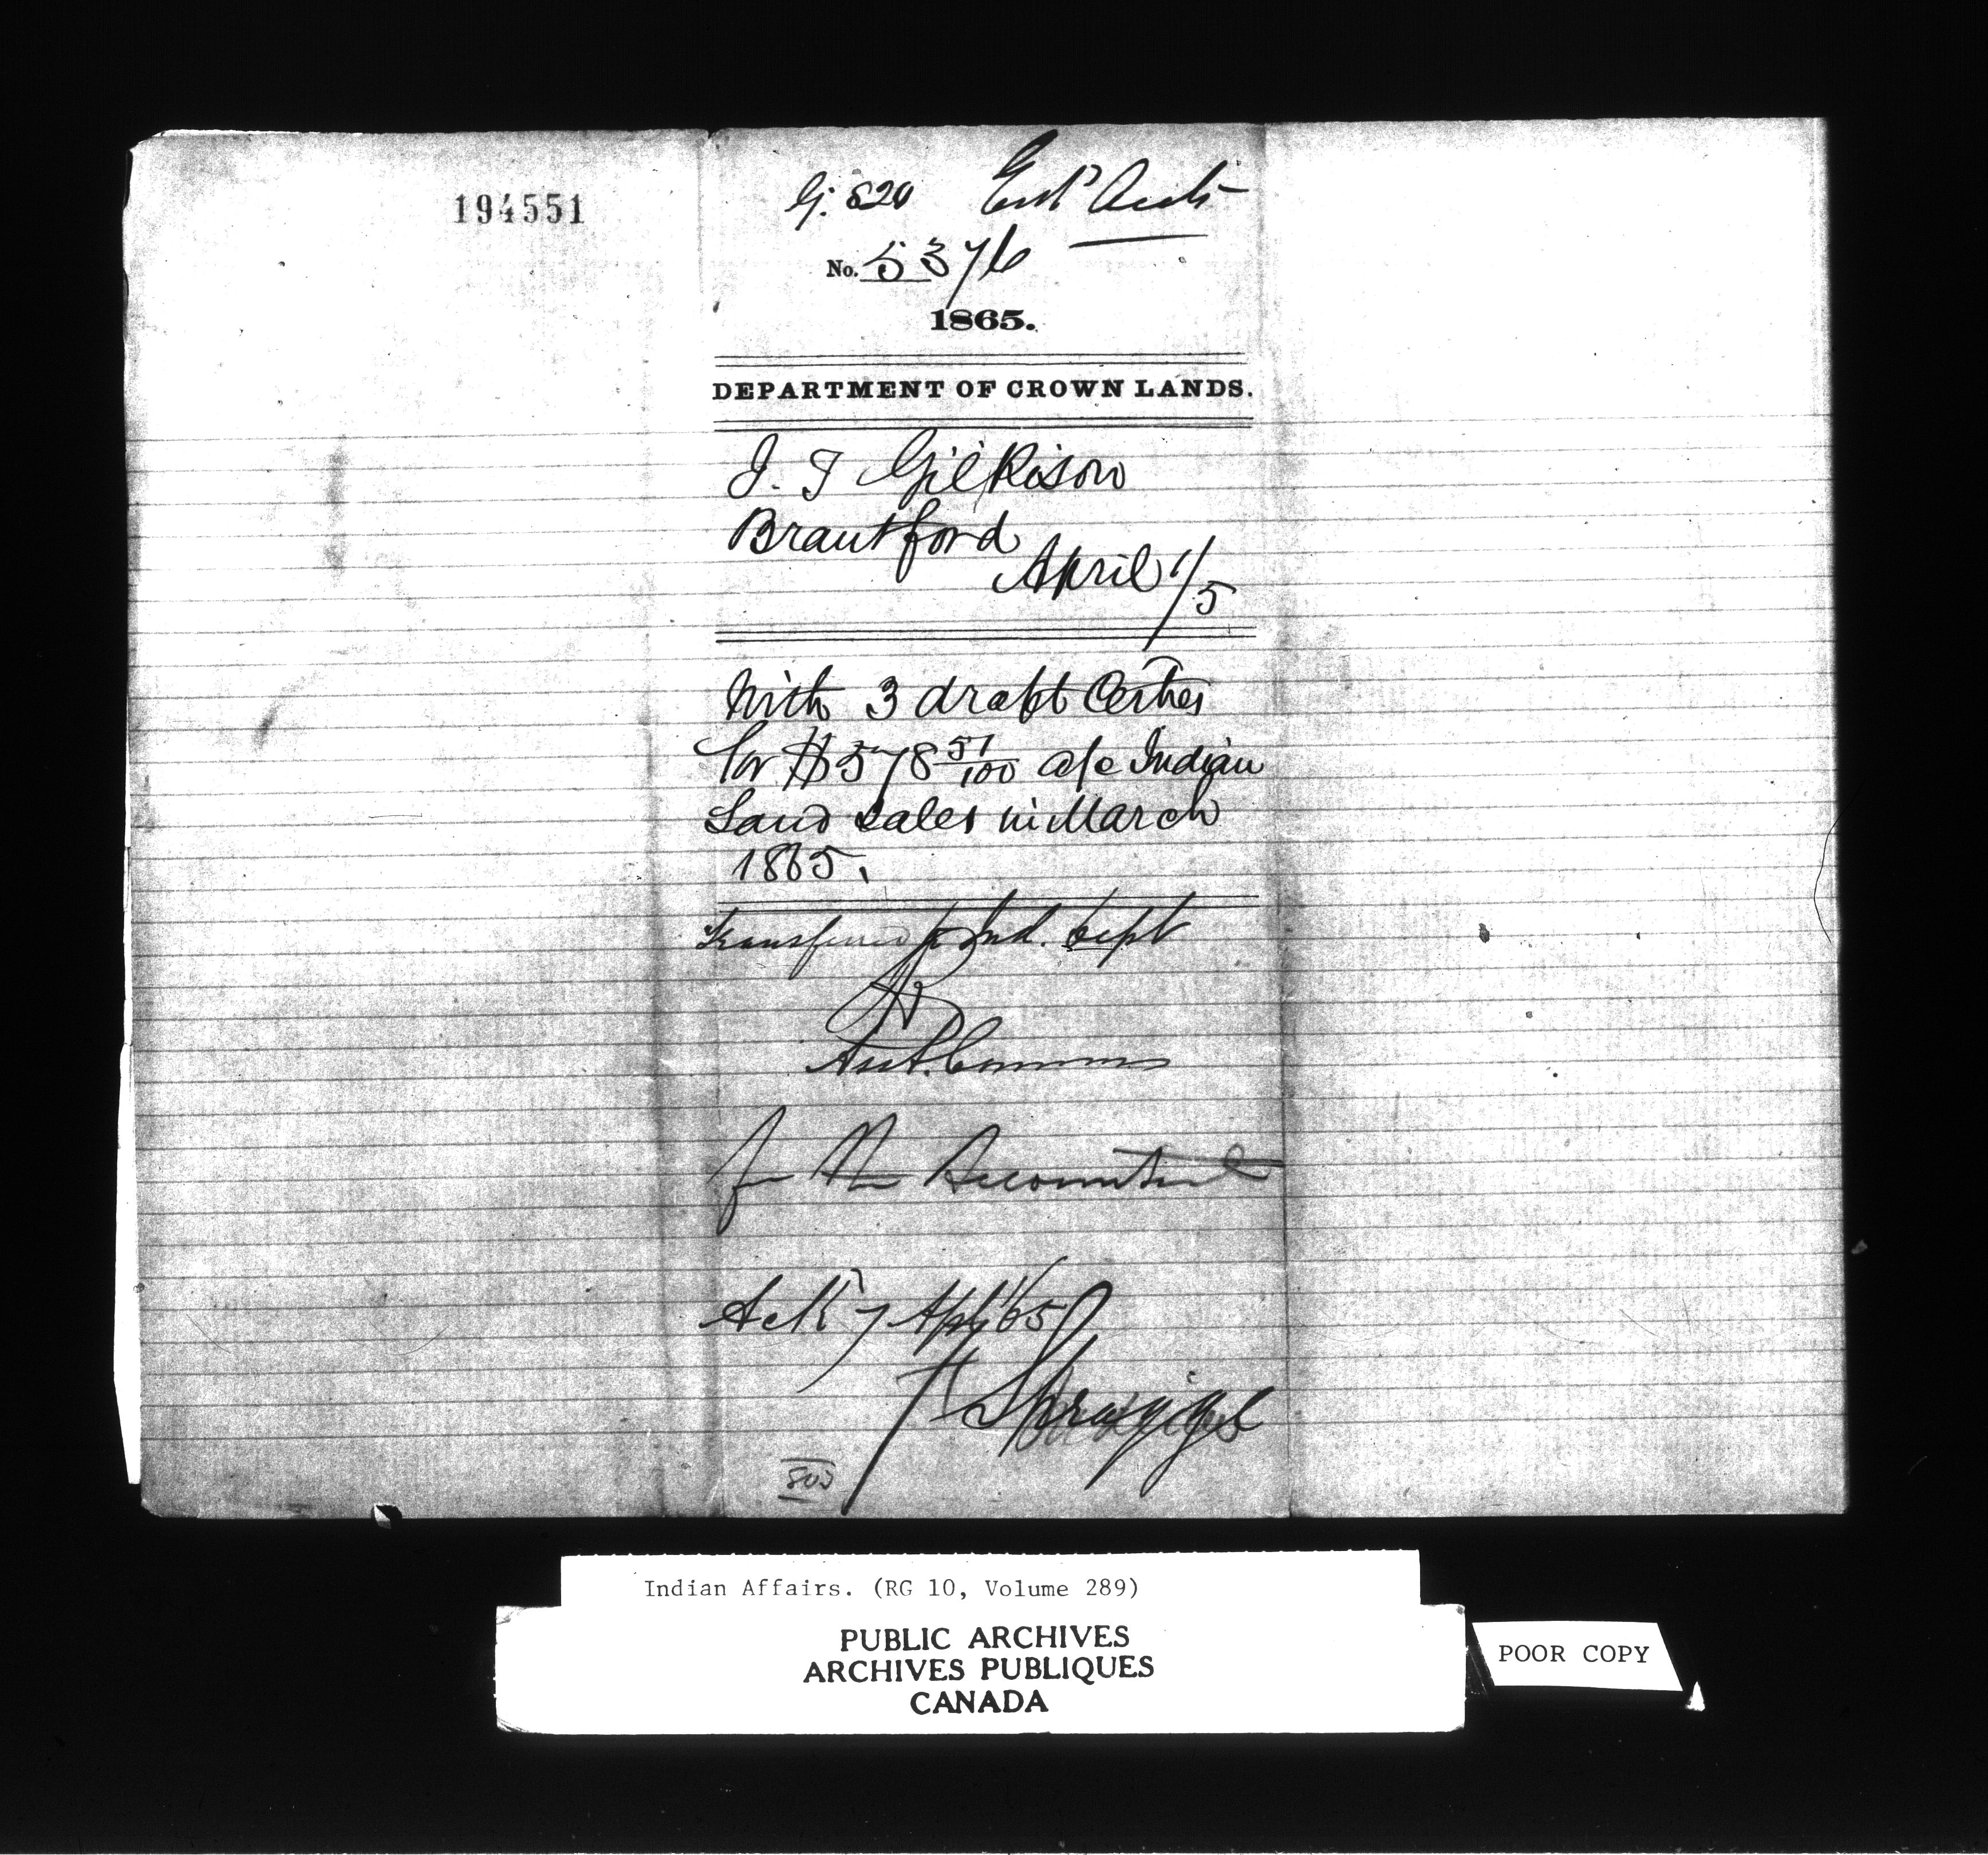 194551
G. 820 Entd Accts
No. 5376
1865.
DEPARTMENT OF CROWN LANDS.
J. T Gilkison
Brantford
April 1/5
With 3 draft Certres
for $578 51/100 a/c Indian
Land sales in March
1865.
Transferred to Ind. Dept
Asst. Commr
for the Accountant
Ackd 7 Apl /65
Spragge
Indian Affairs. (RG 10, Volume 289)
PUBLIC ARCHIVES
ARCHIVES PUBLIQUES
CANADA
POOR COPY